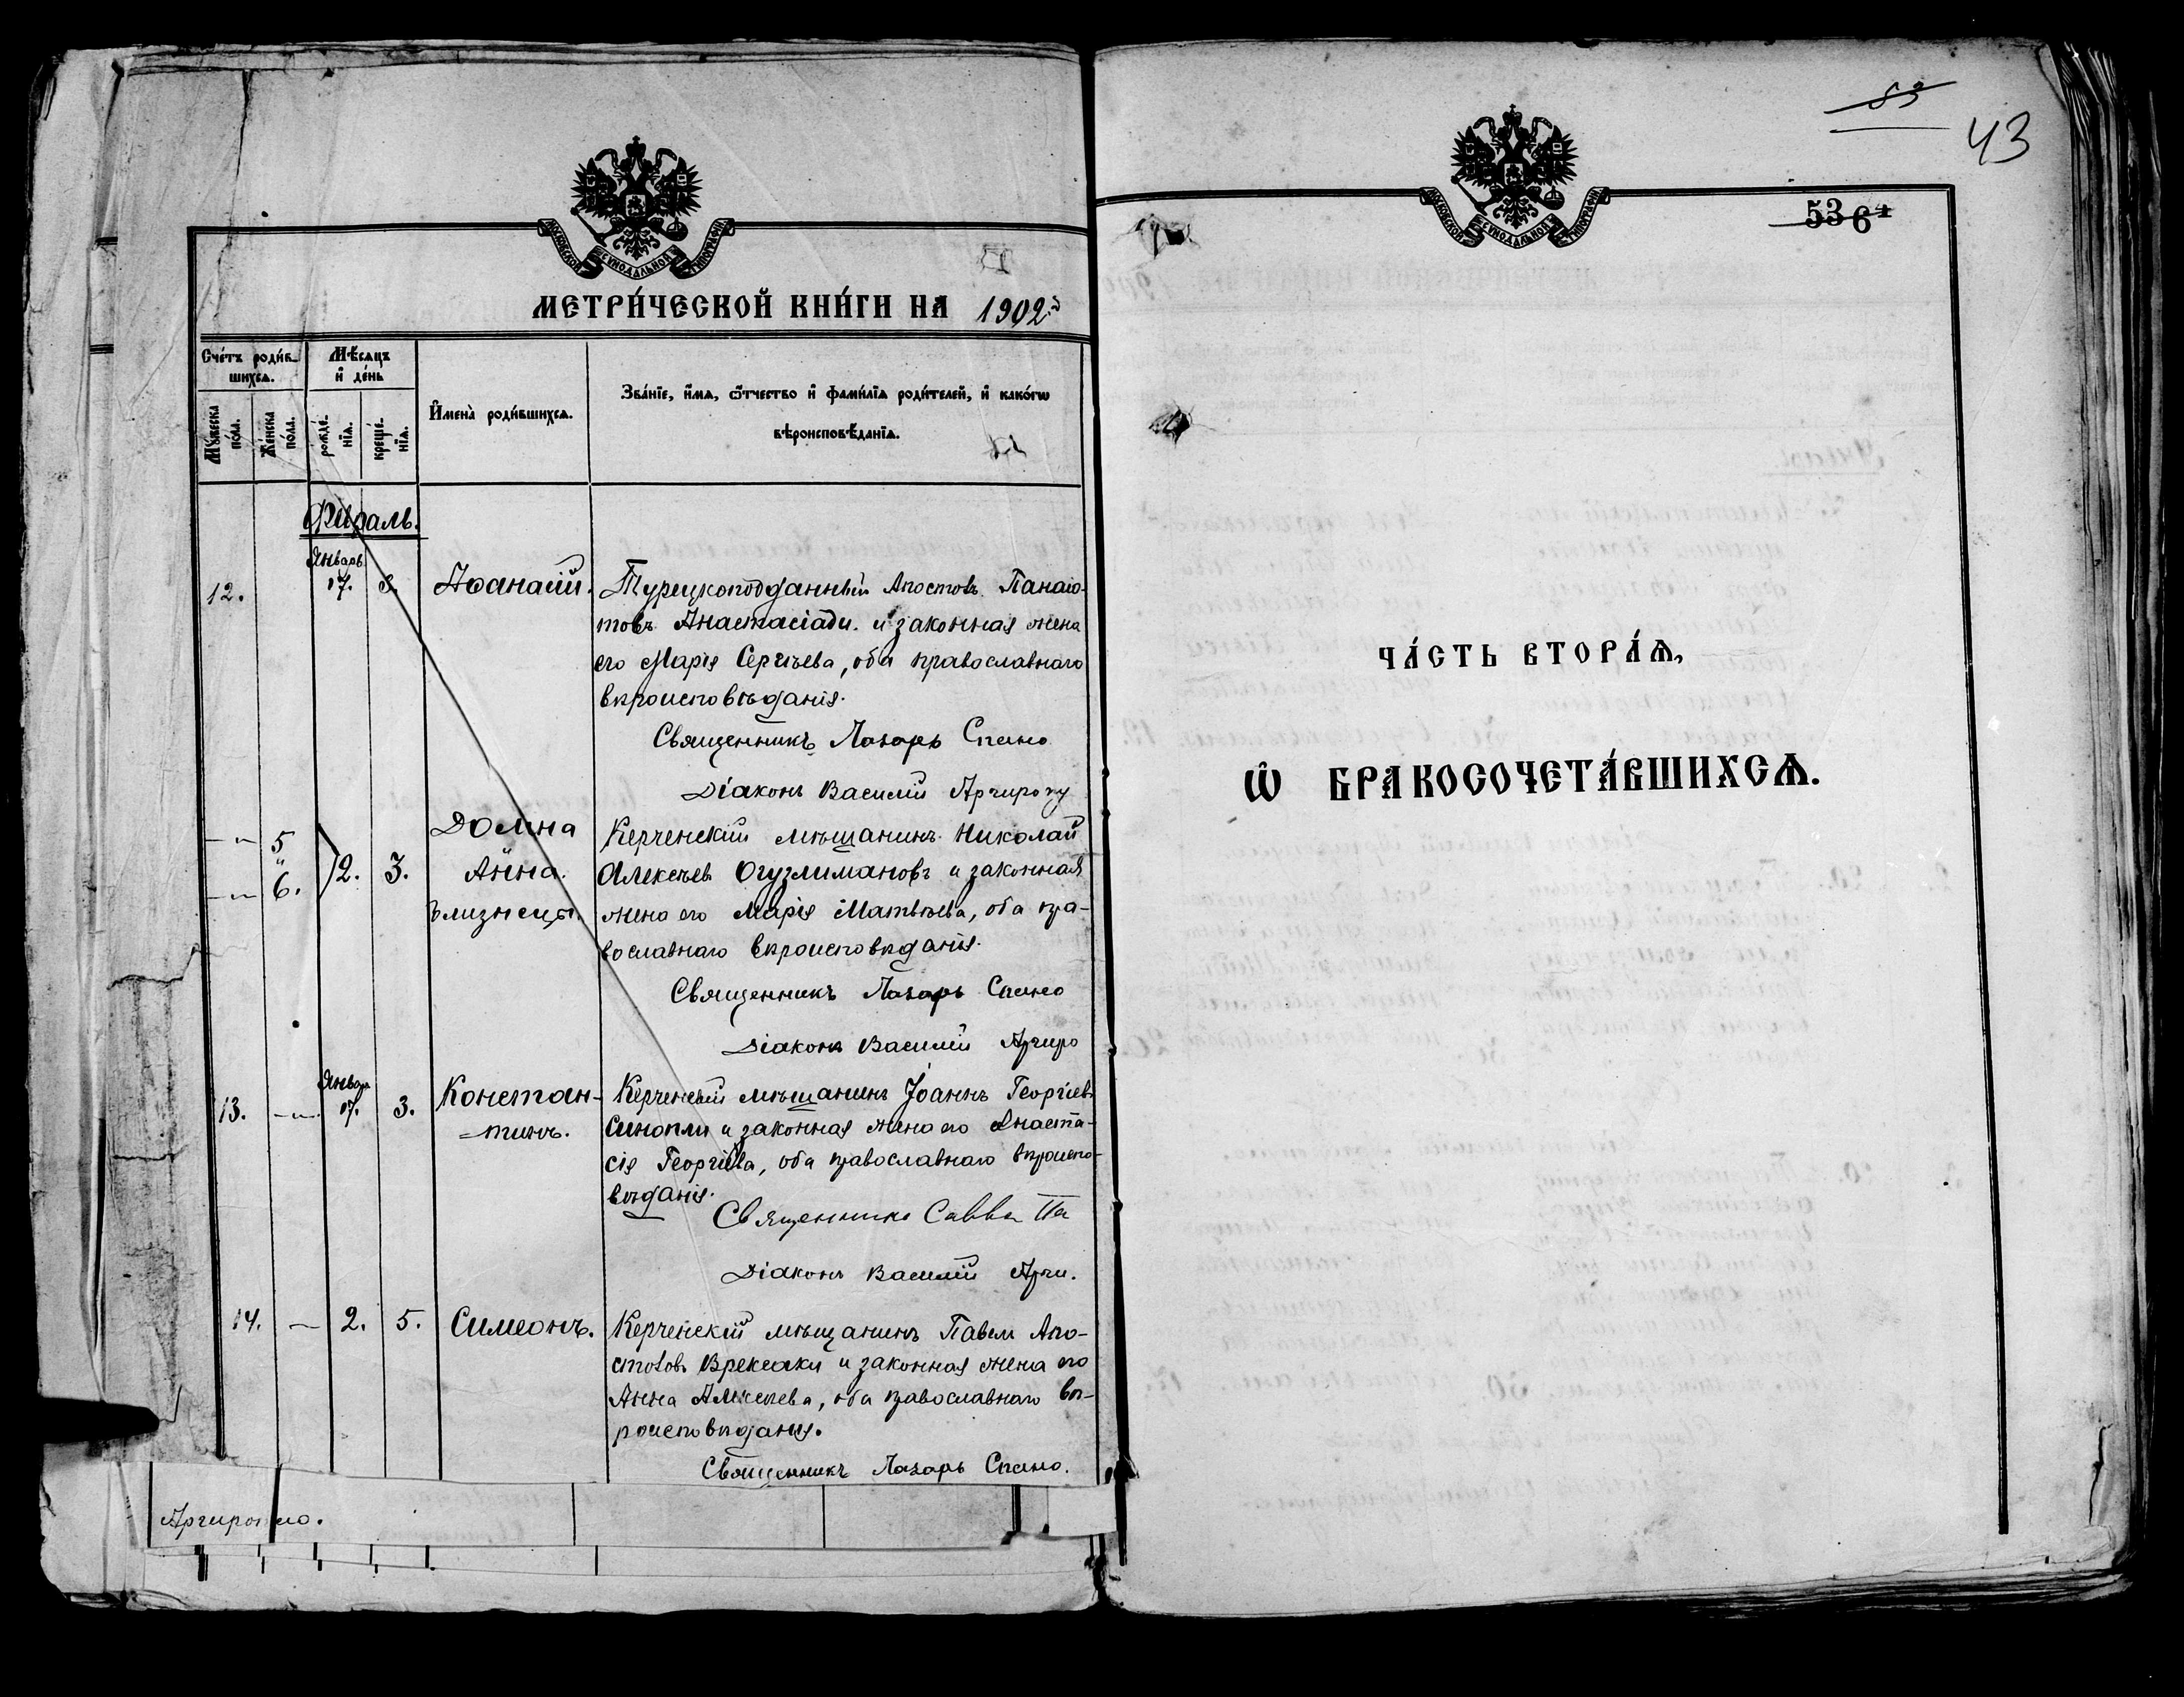 МОСКОВСКОЙ СѴНОДАЛЬНОЙ ТИПОГРАФІИ
МЕТРИ́ЧЕСКОЙ КНИ́ГИ НА 1902
Сче́тъ роди́в-
шихсѧ.
Мѣ́сяцъ
и҆ де́нь
Мꙋ́жеска
по́ла.
Же́нска
по́ла.
рожде́-
нїѧ.
креще́-
нїѧ.
И҆мена̀ роди́вшихсѧ.
Зва́нїе, и҆́мѧ, ѻ҆́тчество и҆ фами́лїѧ роди́телей, и҆ како́гѡ
вѣроисповѣ́данїѧ.
Январь
12.
17.
3.
Аѳанасій.
Турецкоподданный Апостолъ Панаіо-
товъ Анастасіади и законная жена
его Марія Сергѣева, оба православнаго
вѣроисповѣданія.
Священникъ Лазарь Спано
Діаконъ Василій Аргиропу
5
"
6.
2.
3.
Домна
Анна.
Близнецы.
Керченскій мѣщанинъ Николай
Алексѣевъ Огузлимановъ и законная
жена его Марія Матвѣева, оба пра-
вославнаго вѣроисповѣданія.
Священникъ Лазарь Спано
Діаконъ Василій Аргиро
Январ
13.
17.
3.
Констан-
=тинъ.
Керченскій мѣщанинъ Іоаннъ Георгіевъ
Синопли и законная жена его Анаста-
сія Георгіева, оба православнаго вѣроиспо-
вѣданія.
Священникъ Савва Па
Діаконъ Василій Арги.
14.
—
2.
5.
Симеонъ.
Керченскій мѣщанинъ Павелъ Апо-
столовъ Врексаки и законная жена его
Анна Алексѣева, оба православнаго вѣ-
роисповѣданія.
Священникъ Лазарь Спано.
43
МОСКОВСКОЙ СѴНОДАЛЬНОЙ ТИПОГРАФІИ
ЧА́СТЬ ВТОРА́Ѧ,
Ѽ БРАКОСОЧЕТА́ВШИХСѦ.